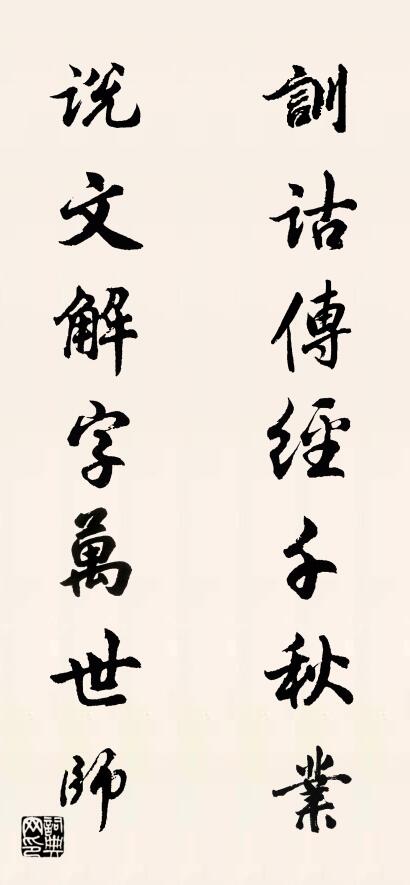 訓詁傳經千秋業
说文解字萬世師
詞典网印